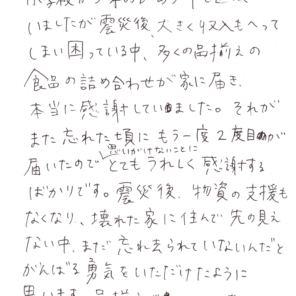 いましたが震災後、大きく収入もへって
しまい困っている中、多くの品揃えの
食品の詰め合わせが家に届き、
本当に感謝していました。それが
また忘れた頃にもう一度2度目が
思いがけないことに
届いたのでとてもうれしく感謝する
ばかりです。震災後、物資の支援も
なくなり、壊れた家に住んで先の見え
ない中、まだ忘れ去られていないんだと
がんばる勇気をいただけたように